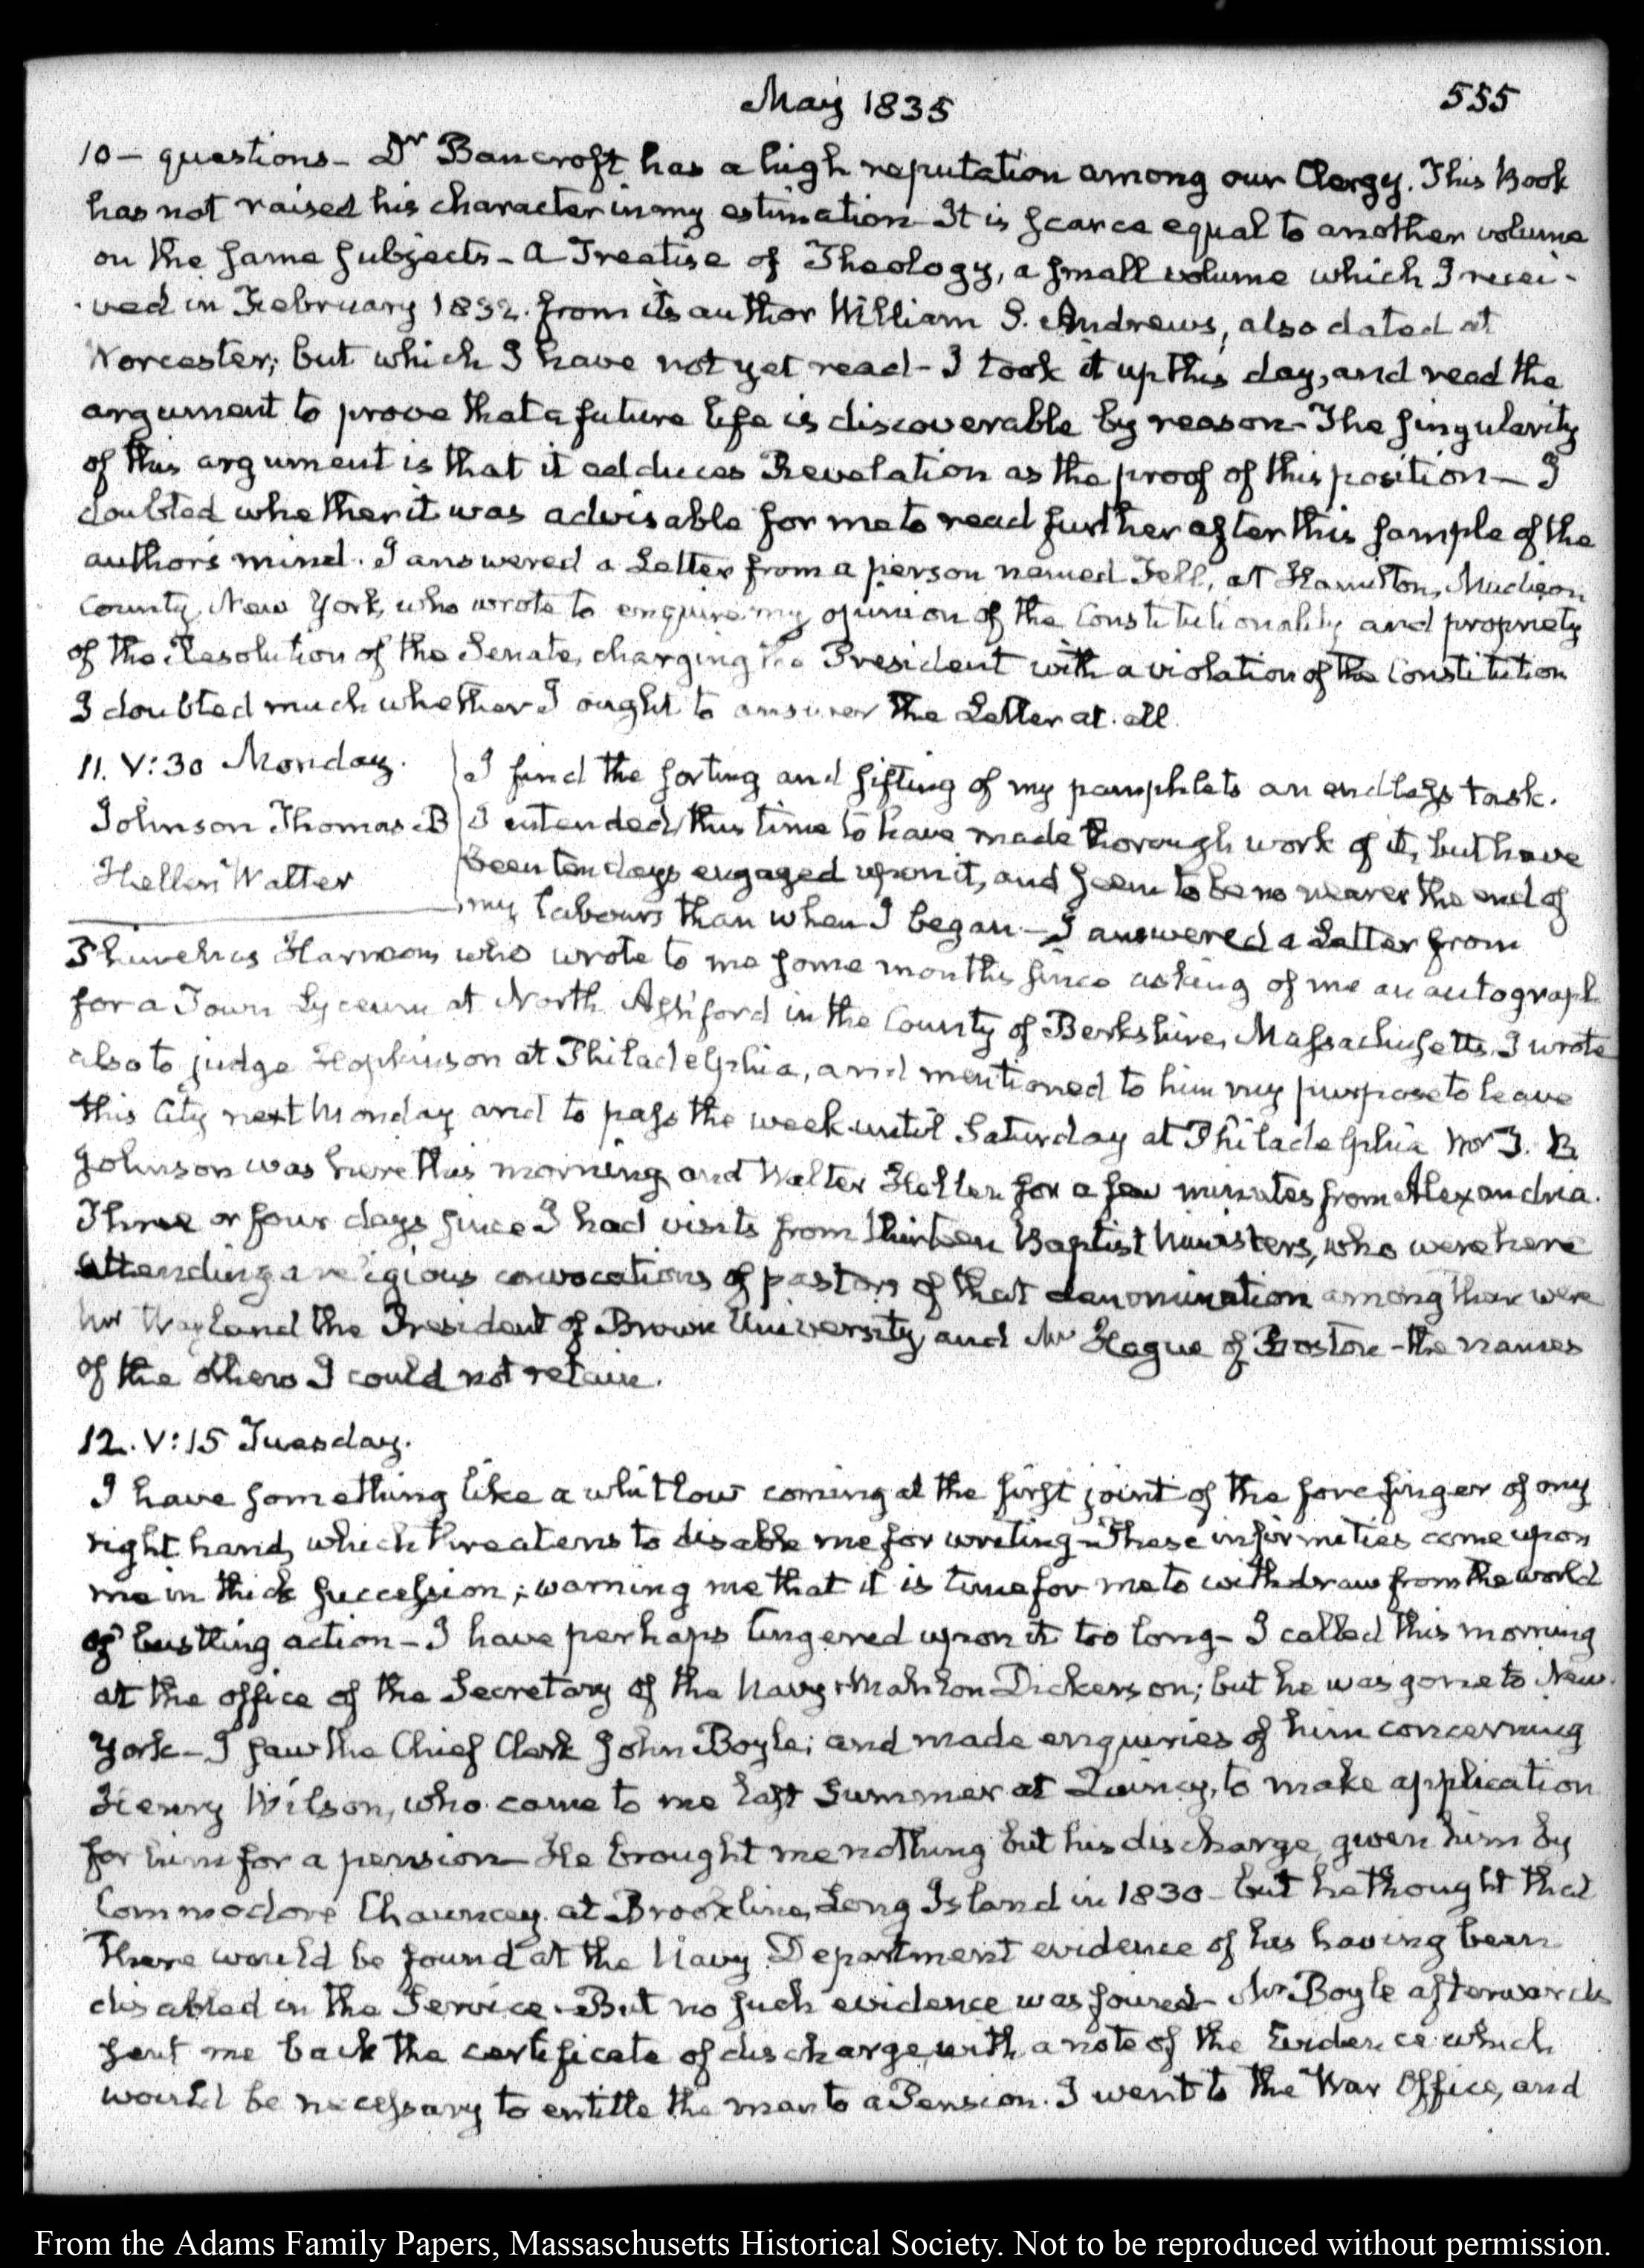 May 1835
555
10 — questions — Dr Bancroft has a high reputation among our Clergy. This Book
has not raised his character in my estimation — It is scarce equal to another volume
on the same subjects — A Treatise of Theology, a small volume which I recei-
-ved in February 1832. from its author William S. Andrews, also dated at
Worcester; but which I have not yet read — I took it up this day, and read the
argument to prove that a future life is discoverable by reason — The singularity
of this argument is that it adduces Revelation as the proof of this position — I
doubted whether it was advisable for me to read further after this sample of the
author's mind. I answered a Letter from a person named Fell, at Hamilton, Madison
County, New York, who wrote to enquire my opinion of the Constitutionality and propriety
of the Resolution of the Senate, charging the President with a violation of the Constitution
I doubted much whether I ought to answer the Letter at all.
11. V:30 Monday.
Johnson Thomas B
Hellen Walter
I find the sorting and sifting of my pamphlets an endless task.
I intended this time to have made thorough work of it, but have
been ten days engaged upon it, and seem to be no nearer the end of
my labours than when I began — I answered a Letter from
Phinehas Harmon who wrote to me some months since asking of me an autograph
for a Town Lyceum at North Ashford in the County of Berkshire, Massachusetts. I wrote
also to judge Hopkinson at Philadelphia, and mentioned to him my purpose to leave
this City next Monday and to pass the week until Saturday at Philadelphia Mr T. B.
Johnson was here this morning and Walter Hellen for a few minutes from Alexandria.
Three or four days since I had visits from thirteen Baptist Ministers, who were here
attending a religious convocations of pastors of that denomination among them were
Mr Wayland the President of Brown University, and Mr Hague of Boston — the names
of the others I could not retain.
12. V:15 Tuesday.
I have something like a whitlow coming at the first joint of the fore finger of my
right hand, which threatens to disable me for writing — These infirmities come upon
me in thick succession; warning me that it is time for me to withdraw from the world
of bustling action — I have perhaps lingered upon it too long — I called this morning
at the office of the Secretary of the Navy Mahlon Dickerson; but he was gone to New-
York — I saw the Chief Clerk John Boyle; and made enquiries of him concerning
Henry Wilson, who came to me last Summer at Quincy, to make application
for him for a pension — He brought me nothing but his discharge, given him by
Commodore Chauncey at Brookline, Long Island in 1830 — but he thought that
there would be found at the Navy Department evidence of his having been
disabled in the Service. But no such evidence was found — Mr Boyle afterwards
sent me back the certificate of discharge, with a note of the Evidence which
would be necessary to entitle the man to a Pension. I went to the War Office, and
From the Adams Family Papers, Massaschusetts Historical Society. Not to be reproduced without permission.